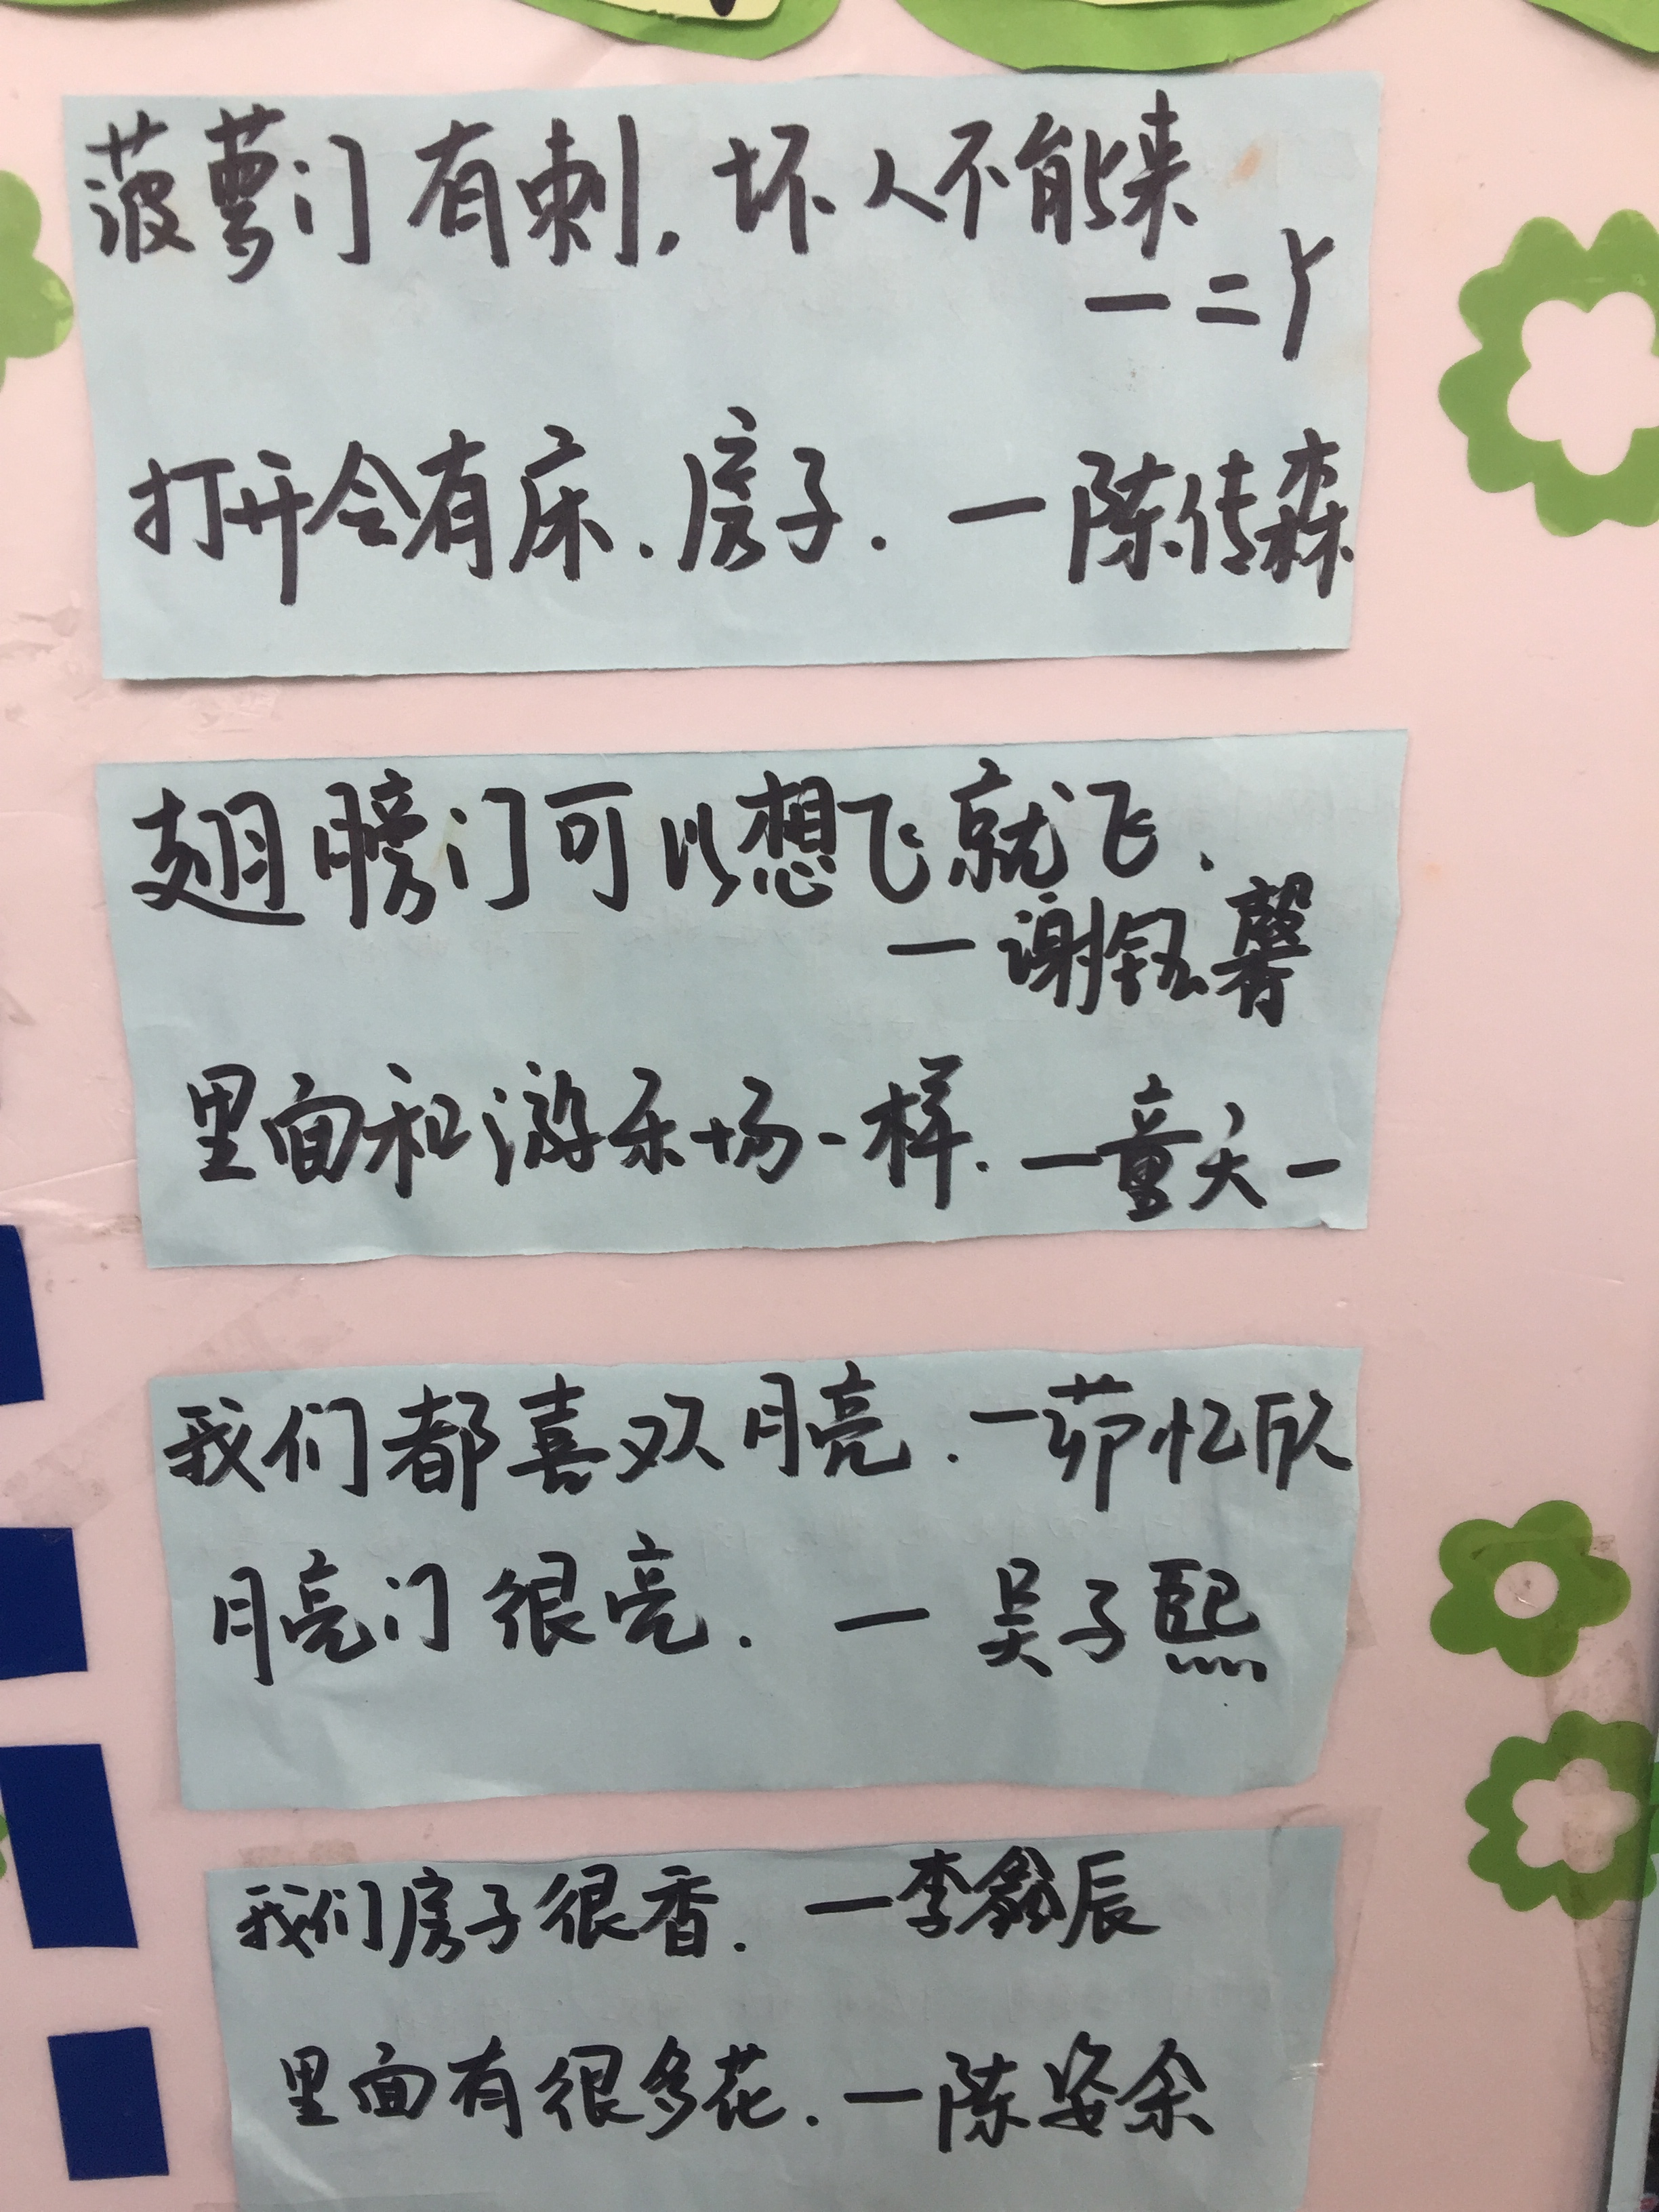 菠萝门有刺，坏人不能来
—二丫
打开会有床、房子.—陈传森
翅膀门可以想飞就飞.
—谢钰馨
里面和游乐场一样.—童天一
我们都喜欢月亮.—茆忆欣
月亮门很亮.—吴子熙
我们房子很香.—李鑫辰
里面有很多花.—陈姿余